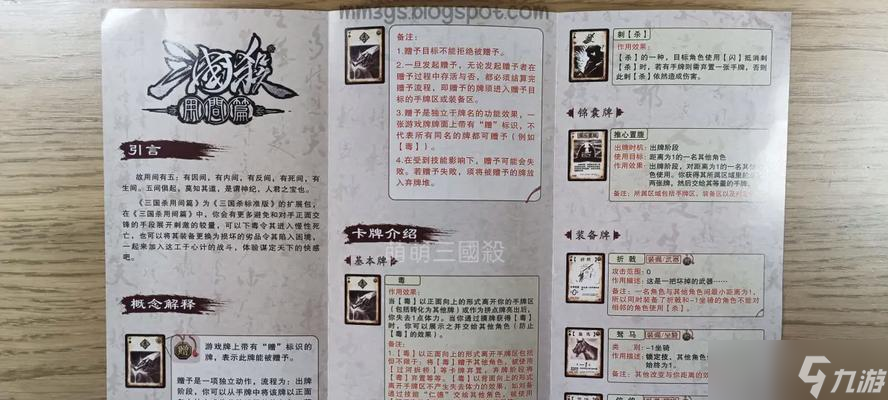 mm3gs.blogspot.com
三國殺
用間篇
引言
故用间有五：有因间，有内间，有反间，有死间，有
生间。五间俱起，莫知其道，是谓神纪，人君之宝也。
《三国杀用间篇》为《三国杀标准版》的扩展包，
在《三国杀用间篇》中，你会有更多避免和对手正面交
锋的手段展开刺激的较量，可以下毒令其进入慢性死
亡，也可以将其装备更换为损坏的劣品令其陷入困境，
一起来加入这工于心计的战斗，体验谋定天下的快感
吧。
概念解释
赠
游戏牌上带有“赠”标识的
牌，表示此牌能被赠予。
赠予是一项独立动作，流程为：出牌
阶段，你可以从手牌中将该牌以正面
备注：
1.赠予目标不能拒绝被赠予。
2.一旦发起赠予，无论发起赠予者在
赠予过程中存活与否，都必须结算完
赠予流程，即赠予的牌须进入赠予目
标的手牌区或装备区。
3.赠予是独立于牌名的功能效果，一
张游戏牌牌面上带有“赠”标识，不
代表所有同名的牌都可赠予（例如
【毒】）。
4.在受到技能影响下，赠予可能会失
败。若赠予失败，须将被赠予的牌放
入弃牌堆。
卡牌介绍
萌萌三國殺
基本牌
【毒】
作用效果：
当【毒】以正面向上的形式离开你的手牌区
（包括转化为其他牌）或作为拼点牌亮出后，
你失去1点体力。当你通过摸牌获得【毒】
时，你可以展示之并交给其他角色（防止
【毒】的效果）。
备注：
1.【毒】以正面向上的形式离开手牌区包括
但不限于：将【毒】赠予其他角色，被使用
【过河拆桥】等卡牌弃置，弃牌阶段将
【毒】弃置等等。【毒】以背面向上的形式
离开手牌区不产生失去体力的效果，如刘备
通过技能“仁德”交给其他角色，被使用
刺【杀】
作用效果：
【杀】的一种，目标角色使用【闪】抵消刺
【杀】时，若有手牌则需弃置一张手牌，否则
此刺【杀】依然造成伤害。
锦囊牌
推心置腹
出牌时机：出牌阶段
使用目标：距离为1的一名其他角色
作用效果：出牌阶段，对距离为1的一名其他
角色使用。你获得其所属区域里
两张牌，然后交给其等量的手牌。
备注：所属区域包括手牌区、装备区以及判定
装备牌
折戟
装备/武器
攻击范围：0
作用描述：这是一把坏掉的武器……
备注：一名角色与其他角色间最小距离为1，
所以同时装备了折戟和-1坐骑的角色不能对
相邻的角色使用【杀】。
驽马
装备/坐骑
类 别：-1坐骑
作用描述：锁定技，其他角色
始终为1。
备注：其他改变与你距离的效
九游